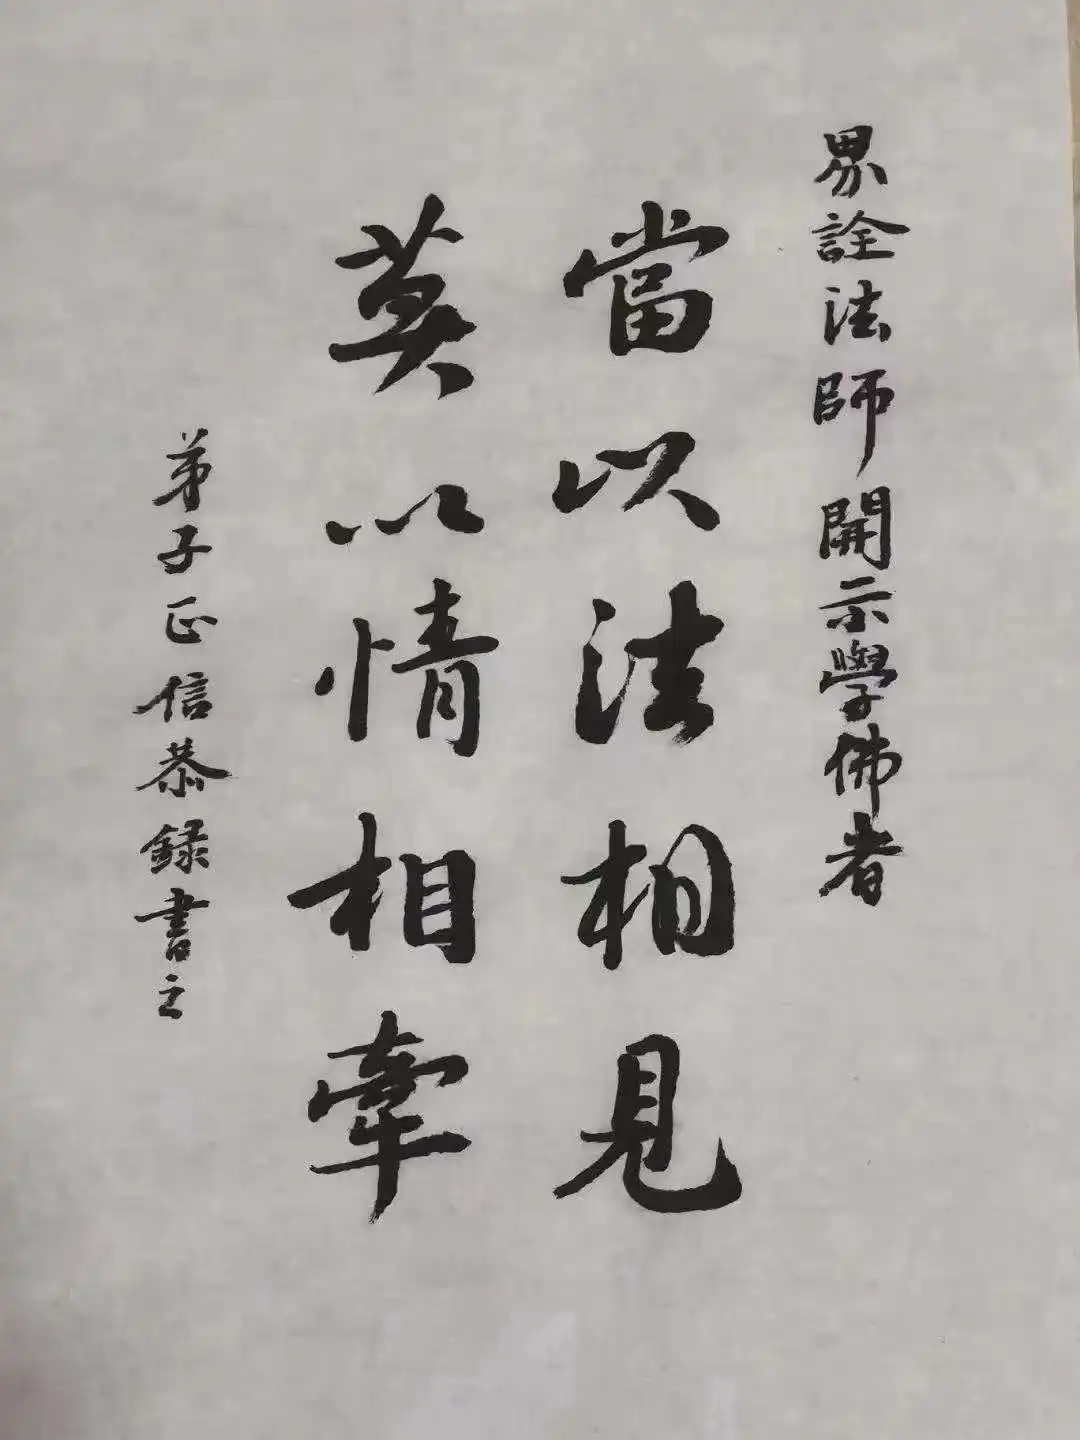 界詮法師開示學佛者
當以法相見
莫以情相牽
弟子正信恭錄書之